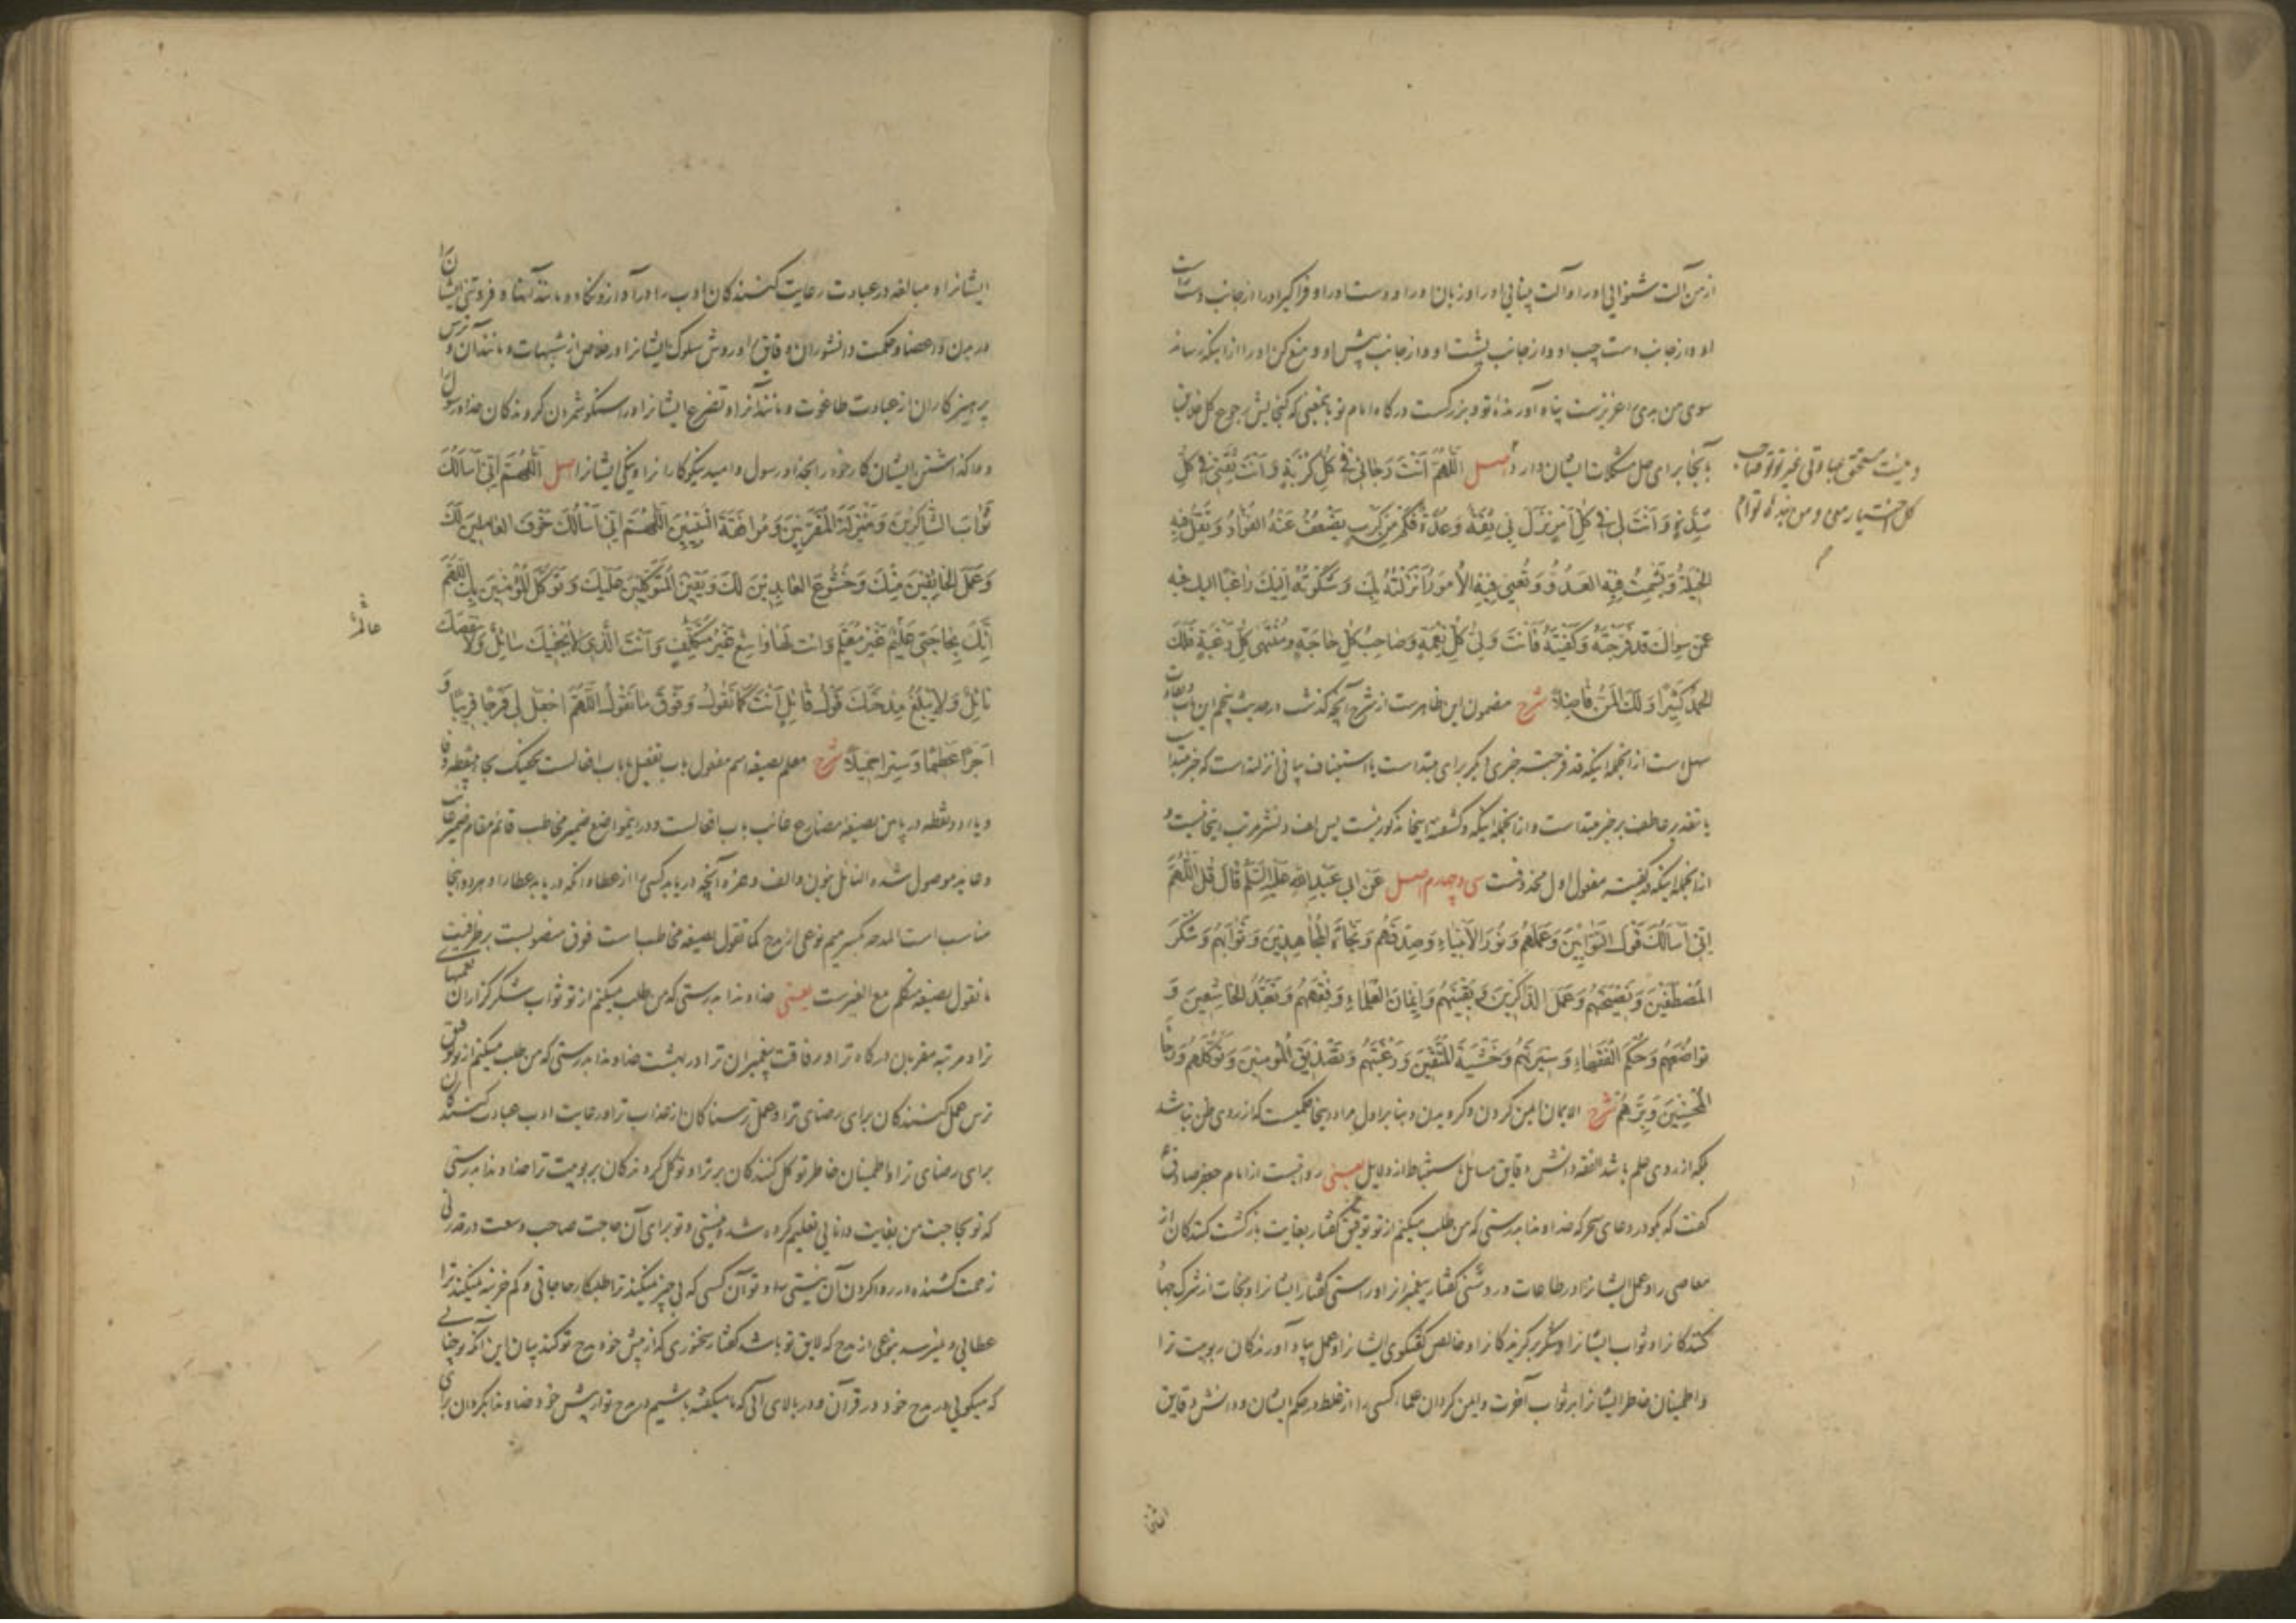 از من آلت شنوایی او را و آلت بینایی او را و زبان او را و دست او را و فرا گیر او را از جانب دست راست
او و از جانب دست چپ او و از جانب پشت او و از جانب پیش او و منع کن او را از اینکه رساند
سوی من بدی را عزیزست پناه آورندهٔ تو و بزرگست
بآنجا برای حل مشکلات ایشان دارد اصل اَللّهُمَّ اَنْتَ رَجائی فی کُلِّ کُرْبَةٍ وَ اَنْتَ ثِقَتی فی کُلِّ
شِدَّةٍ وَ اَنْتَ لی فی کُلِّ اَمْرٍ نَزَلَ بی ثِقَةٌ وَ عُدَّةٌ فَکَمْ مِنْ کَرْبٍ یَضْعُفُ عَنْهُ الفُؤادُ وَ تَقِلُّ فیهِ
الحیلَةُ وَ یَشْمَتُ فیهِ العَدُوُّ وَ تُعْیی فیهِ الاُمورُ اَنْزَلْتُهُ بِکَ وَ شَکَوْتُهُ اِلَیْکَ راغِبًا الیک فیه
عَمَّنْ سِواکَ قد فَرَّجْتَهُ وَ کَفَیْتَهُ فَاَنْتَ وَلِیُّ کُلِّ نِعْمَةٍ وَ صاحِبُ کُلِّ حاجَةٍ و مُنْتَهی کُلِّ رَغْبَةٍ فَلَکَ
الحَمْدُ کَثیرًا وَ لَکَ المَنُّ فاضِلاً شرح مضمون این ظاهرست از شرح آنچه گذشت در حدیث پنجم این باب و تفاوت
سهل است از انجمله اینکه قد فرجته خبری دیگر برای مبتداست یا استیناف بیانی
یا بتقدیر عاطف بر خبر مبتداست و از انجمله اینکه و کشفته اینجا مذکور نیست پس لف و نشر مرتب اینجا نیست و
از انجمله اینکه در کفیته مفعول اول محذوفست سی و چهارم اصل عَنْ ابی عَبْدِ اللهِ عَلَیْهِ السَّلامُ قالَ قُلِ اللَّهُمَّ
اِنّی اَسْأَلُکَ قَوْلَ التَّوّابینَ وَ عَمَلَهُمْ وَ نُورَ الاَنْبِیاءِ وَ صِدْقَهُمْ وَ نَجاةَ المُجاهِدینَ وَ ثَوابَهُمْ وَ شُکْرَ
المُصْطَفَیْنَ وَ نَصیحَتَهُمْ وَ عَمَلَ الذّاکِرینَ وَ یَقینَهُمْ وَ ایمانَ العُلَماءِ وَ فِقْهَهُمْ وَ تَعَبُّدَ الخاشِعینَ وَ
تَواضُعَهُمْ وَ حُکْمَ الفُقَهاءِ وَ سیرَتَهُمْ وَ خَشْیَةَ المُتَّقینَ وَ رَغْبَتَهُمْ وَ تَصْدیقَ المُؤمِنینَ وَ تَوَکُّلَهُمْ وَ رَجاءَ
المُحْسِنینَ وَ بِرَّهُمْ شرح الایمان ایمن کردن و گرویدن و بنا بر اول مراد اینجا حکمیست که از روی ظن نباشد
بلکه از روی علم باشد الفقه دانش دقایق مسائل باستنباط از دلایل یعنی روایتست از امام جعفر صادق ع
گفت که بگو در دعای سحر که خداوندا بدرستی که من طلب میکنم از تو توفیق گفتار بغایت بازگشت کنندگان از
معاصی را و عمل ایشانرا در طاعات و روشنی گفتار پیغمبرانرا و راستی گفتار ایشانرا و نجات از شرک جهاد
کنندگانرا و ثواب ایشانرا و شکر برگزیدگانرا و خالص گفتگوی ایشانرا و عمل بیاد آورندگان ربوبیت ترا
و اطمینان خاطر ایشانرا بر ثواب آخرت و ایمن کردن علما کسی را از غلط در حکم ایشان و دانش دقایق
و نیست مستحق عبادتی غیر تو
کل اختیار منی و من بندهٔ توام
ایشانرا و مبالغه در عبادت رعایت کنندگان ادب را در آواز و نگاه و مانند آنها و فروتنی ایشانرا
در بدن و اعضا و حکمت دانشوران دقایق را و روش سلوک ایشانرا در خلاص از شبهات و مانند آن و ترس
پرهیزکاران از عبادت طاغوت و مانند آنرا و تضرع ایشانرا و راستگو شمردن گروندگان خدا و رسول را
و واگذاشتن ایشان کار خود را بخدا و رسول و امید نیکوکارانرا و نیکی ایشانرا اصل اَللّهُمَّ اِنّی اَسْأَلُکَ
ثَوابَ الشّاکِرینَ وَ مَنْزِلَةَ المُقَرَّبینَ وَ مُرافَقَةَ النَّبِیّینَ اَللّهُمَّ اِنّی اَسْأَلُکَ خَوْفَ العامِلینَ لَکَ
وَ عَمَلَ الخائِفینَ مِنْکَ وَ خُشُوعَ العابِدینَ لَکَ وَ یَقینَ المُتَوَکِّلینَ عَلَیْکَ وَ تَوَکُّلَ المُؤْمِنینَ بِکَ اللّهُمَّ
اِنَّکَ بِحاجَتی عَلیمٌ غَیْرُ مُعَلَّمٍ وَ اَنْتَ لَها واسِعٌ غَیْرُ مُتَکَلِّفٍ وَ اَنْتَ الَّذی لا یُحْفیکَ سائِلٌ وَ لا یَنْقُصُکَ
نائِلٌ وَ لا یَبْلُغُ مِدْحَتَکَ قَوْلُ قائِلٍ اَنْتَ کَما تَقُولُ وَ فَوْقَ ما نَقُولُ اَللّهُمَّ اجْعَلْ لی فَرَجًا قَریبًا وَ
اَجْرًا عَظیمًا وَ سِتْرًا جَمیلاً شرح معلم بصیغه اسم مفعول باب تفعیل یا باب افعالست یحفیک بحا بی نقطه و فا
و یاء دو نقطه در پایین بصیغه مضارع غائب باب افعالست و درین مواضع ضمیر مخاطب قائم مقام ضمیر غائب
و عاید موصول شده النائل بنون و الف و همزه آنچه دریابد کسی را از عطا و آنکه دریابد عطا را و هر دو اینجا
مناسب است المدحه بکسر میم نوعی از مدح کما تقول بصیغه مخاطب است فوق منصوبست بر ظرفیت
ما نقول بصیغه متکلم مع الغیرست یعنی خداوندا بدرستی که من طلب میکنم از تو ثواب شکرگزاران نعمتهای
ترا و مرتبه مقربان درگاه ترا و رفاقت پیغمبران ترا در بهشت خداوندا بدرستی که من طلب میکنم از تو توفیق
ترس عمل کنندگان برای رضای ترا و عمل ترسناکان از عذاب ترا و رعایت ادب عبادت کنندگان
برای رضای ترا و اطمینان خاطر توکل کنندگان بر ترا و توکل گروندگان بربوبیت ترا خداوندا بدرستی
که تو بحاجت من بغایت دانایی تعلیم کرده شده نیستی و تو برای آن حاجت صاحب وسعت در قدرتی
زحمت کشنده در روا کردن آن نیستی و تو آن کسی که بی چیز نمیکند ترا طلبکار حاجاتی و کم خزینه نمیکند ترا
عطایی و نمیرسد بنوعی از مدح که لایق تو باشد گفتار سخنوری که از پیش خود مدح تو کند بیان این آنکه تو چنانی
که میگویی در مدح خود در قرآن و در بالای آنی که ما میگفته باشیم در مدح تو از پیش خود خداوندا بگردان برای